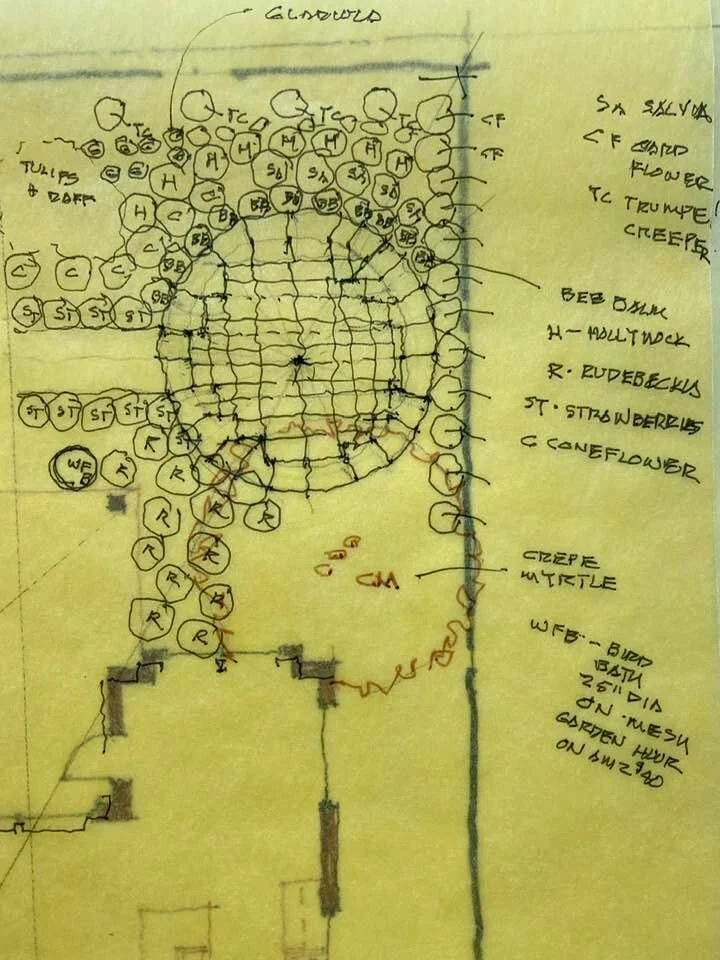 TC TC TC TC
CF
CF
TULIPS
& DAFF
G G G
G G
H H M M M M H
H C C SA SA SA SA SA
C BB BB BB BB BB BB BB BB BB BB BB
C C C
ST ST ST ST
ST ST ST ST ST
WFB R R R
R R R
R R
R R
R R
CM
SA SALVIA
CF CARD
FLOWER
TC TRUMPET
CREEPER
BEE BALM
H - HOLLYHOCK
R. RUDEBECKIA
ST. STRAWBERRIES
C CONEFLOWER
CREPE
MYRTLE
WFB - BIRD
BATH
25" DIA
ON MESH
GARDEN